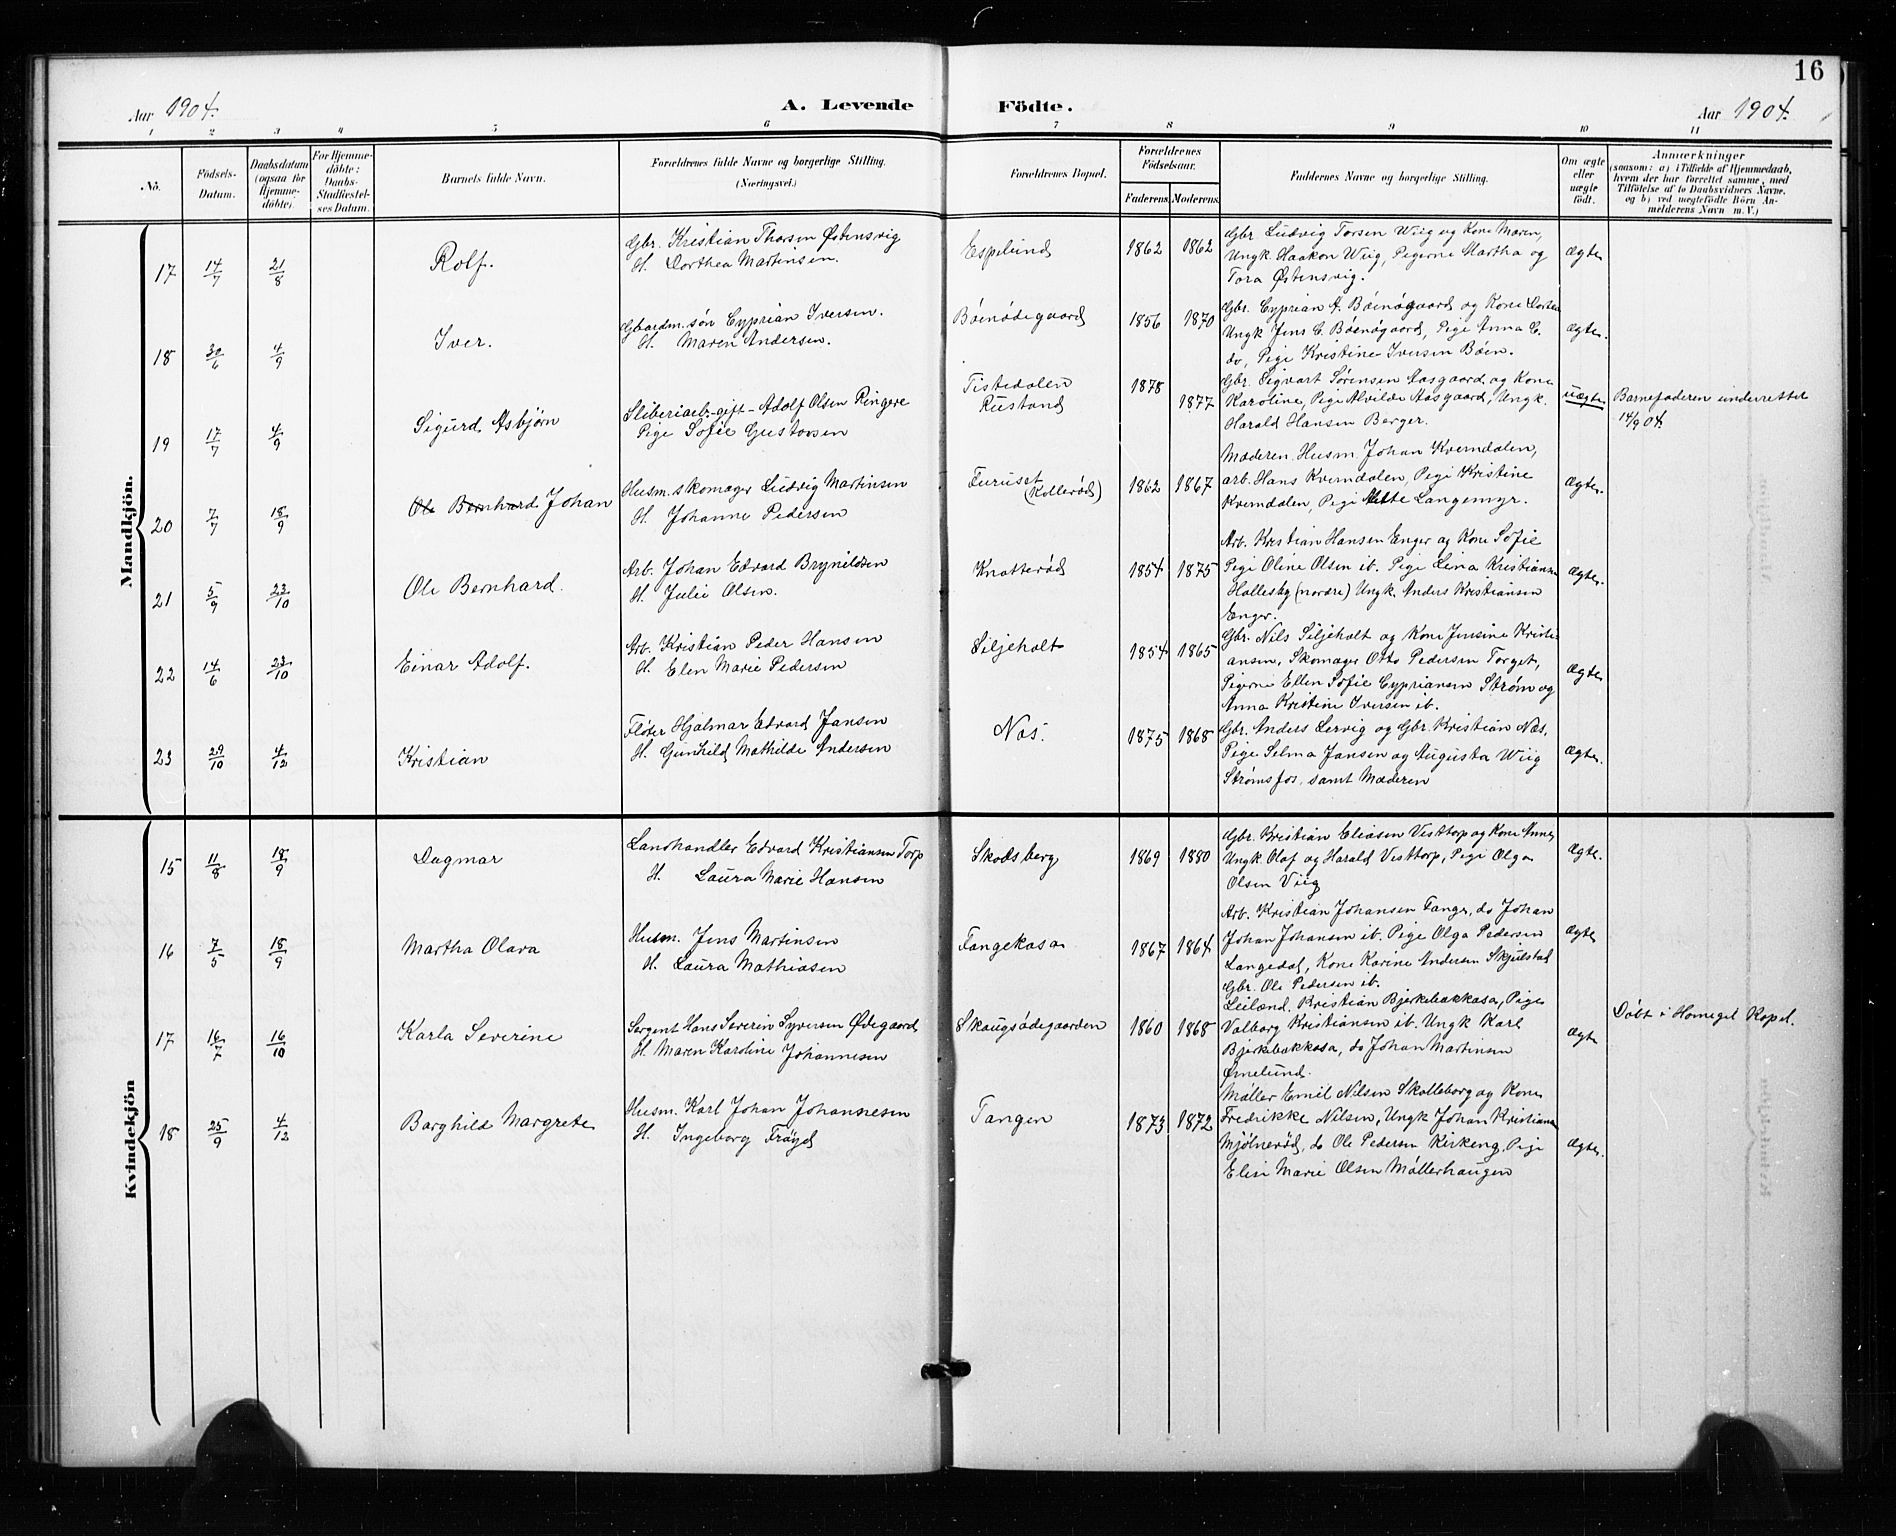 16
Aar 1904.
A. Levende Födte.
Aar 1904.
1 2 3 4 5 6 7 8 9 10 11
No.
Födsels-
Datum.
Daabsdatum
(ogsaa for
Hjemme-
döbte).
For Hjemme-
döbte:
Daabs-
Stadfæstel-
ses Datum.
Barnets fulde Navn.
Forældrenes fulde Navne og borgerlige Stilling.
(Næringsvei.)
Forældrenes Bopæl.
Forældrenes
Födselsaar.
Faderens. Moderens.
Faddernes Navne og borgerlige Stilling.
Om ægte
eller
uægte
födt.
Anmærkninger
(saasom: a) i Tilfælde af Hjemmedaab,
hvem der har forrettet samme, med
Tilföielse af to Daabsvidners Navne,
og b) ved uægtefödte Börn An-
melderens Navn m. V.)
Mandkjön.
17 14/7 21/8 Rolf.
Gbr. Kristian Thorsen Østensvig
H. Dorthea Martinsen.
Espelund 1862 1862
Gbr Ludvig Torsen Wiig og Kone Maren,
Ungk. Haakon Wiig, Pigerne Martha og
Tora Østensvig.
Ægte
18 30/6 4/9 Iver.
Gbardm. søn Cyprian Iversen.
H. Maren Andersen.
Böenödegaard 1856 1870
Gbr. Cyprian A. Böenögaard og Kone Dortea
Ungk Jens C. Böenögaard, Pige Anna C.
do, Pige Kristine Iversen Böen.
Ægte.
19 17/7 4/9 Sigurd Asbjörn
Sliberiarb.-gift-Adolf Olsen Ringere
Pige Sofie Gustavsen
Tistedalen
Rustand
1878
1877
Gbr. Sigvart Sørensen Aasgaard og Kone
Karoline, Pige Alvilde Aasgaard, Ungk.
Harald Hansen Berger.
uægte
Barnefaderen underrettet
14/9 04.
20 7/7 18/9 Ole Bernhard Johan
Husm. skomager Ludvig Martinsen
H. Johanne Pedersen
Furuset
(Kollerød)
1862 1867
Moderen. Husm Johan Kverndalen,
arb. Hans Kverndalen, Pige Kristine
Kverndalen, Pige Mette Langemyr.
Ægte.
21 5/9 23/10 Ole Bernhard.
Arb. Johan Edvard Brynildsen
H. Julie Olsen.
Knatterød 1854 1875
Arb. Kristian Hansen Enger og Kone Sofie
Pige Oline Olsen ib. Pige Lina Kristiansen
Holleby (nordre) Ungk. Anders Kristiansen
Enger.
Ægte.
22 14/6 23/10 Einar Adolf.
Arb. Kristian Peder Hansen
H. Elen Marie Pedersen
Siljeholt 1854 1865
Gbr. Nils Siljeholt og Kone Jensine Kristi-
ansen, Skomager Otto Pedersen Torget,
Pigerne Ellen Sofie Cypriansen Strøm og
Anna Kristine Iversen ib.
Ægte
23 29/10 4/12 Kristian
Fløter Hjalmar Edvard Jansen
H. Gunhild Mathilde Andersen
Næs. 1875 1868
Gbr. Anders Lervig og Gbr. Kristian Næs.
Pige Selma Jansen og Augusta Wiig
Strømsfos. samt Moderen
Ægte.
Kvindekjön
15 11/8 18/9 Dagmar
Landhandler Edvard Kristiansen Torp
H. Laura Marie Hansen
Skodsberg 1869 1880
Gbr. Kristian Eliasen Vesttorp og Kone Anne,
Ungk Olaf og Harald Vesttorp, Pige Olga
Olsen Viig
Ægte.
16 7/5 18/9 Martha Olava
Husm. Jens Martinsen
H. Laura Mathiasen
Tangekasa 1867 1864
Arb. Kristian Johansen Tange, do Johan
Johan Johansen ib. Pige Olga Pedersen
Langedal, Kone Karine Andersen Skjulstad
Gbr. Ole Pedersen ib.
Ægte
17 16/7 16/10 Karla Severine
Sergent Hans Severin Syversen Ødegaard
H. Maren Karoline Johannesen
Skaugsødegaarden 1860 1868
Leiland. Kristian Bjerkebakkasa, Pige
Valborg Kristiansen ib. Ungk Karl
Bjerkebakkasa, do Johan Martinsen
Ørnelund.
Ægte
Döbt i Hornegel Kapel.
18 25/9 4/12 Borghild Margrete
Husm. Karl Johan Johannesen
H. Ingeborg Frøyd
Tangen 1873 1872
Møller Emil Nilsen Skolleborg og Kone
Fredrikke Nilsen, Ungk Johan Kristians
Mjölnerød, do Ole Pedersen Kirkeng, Pige
Elise Marie Olsen Møllerhaugen
Ægte.